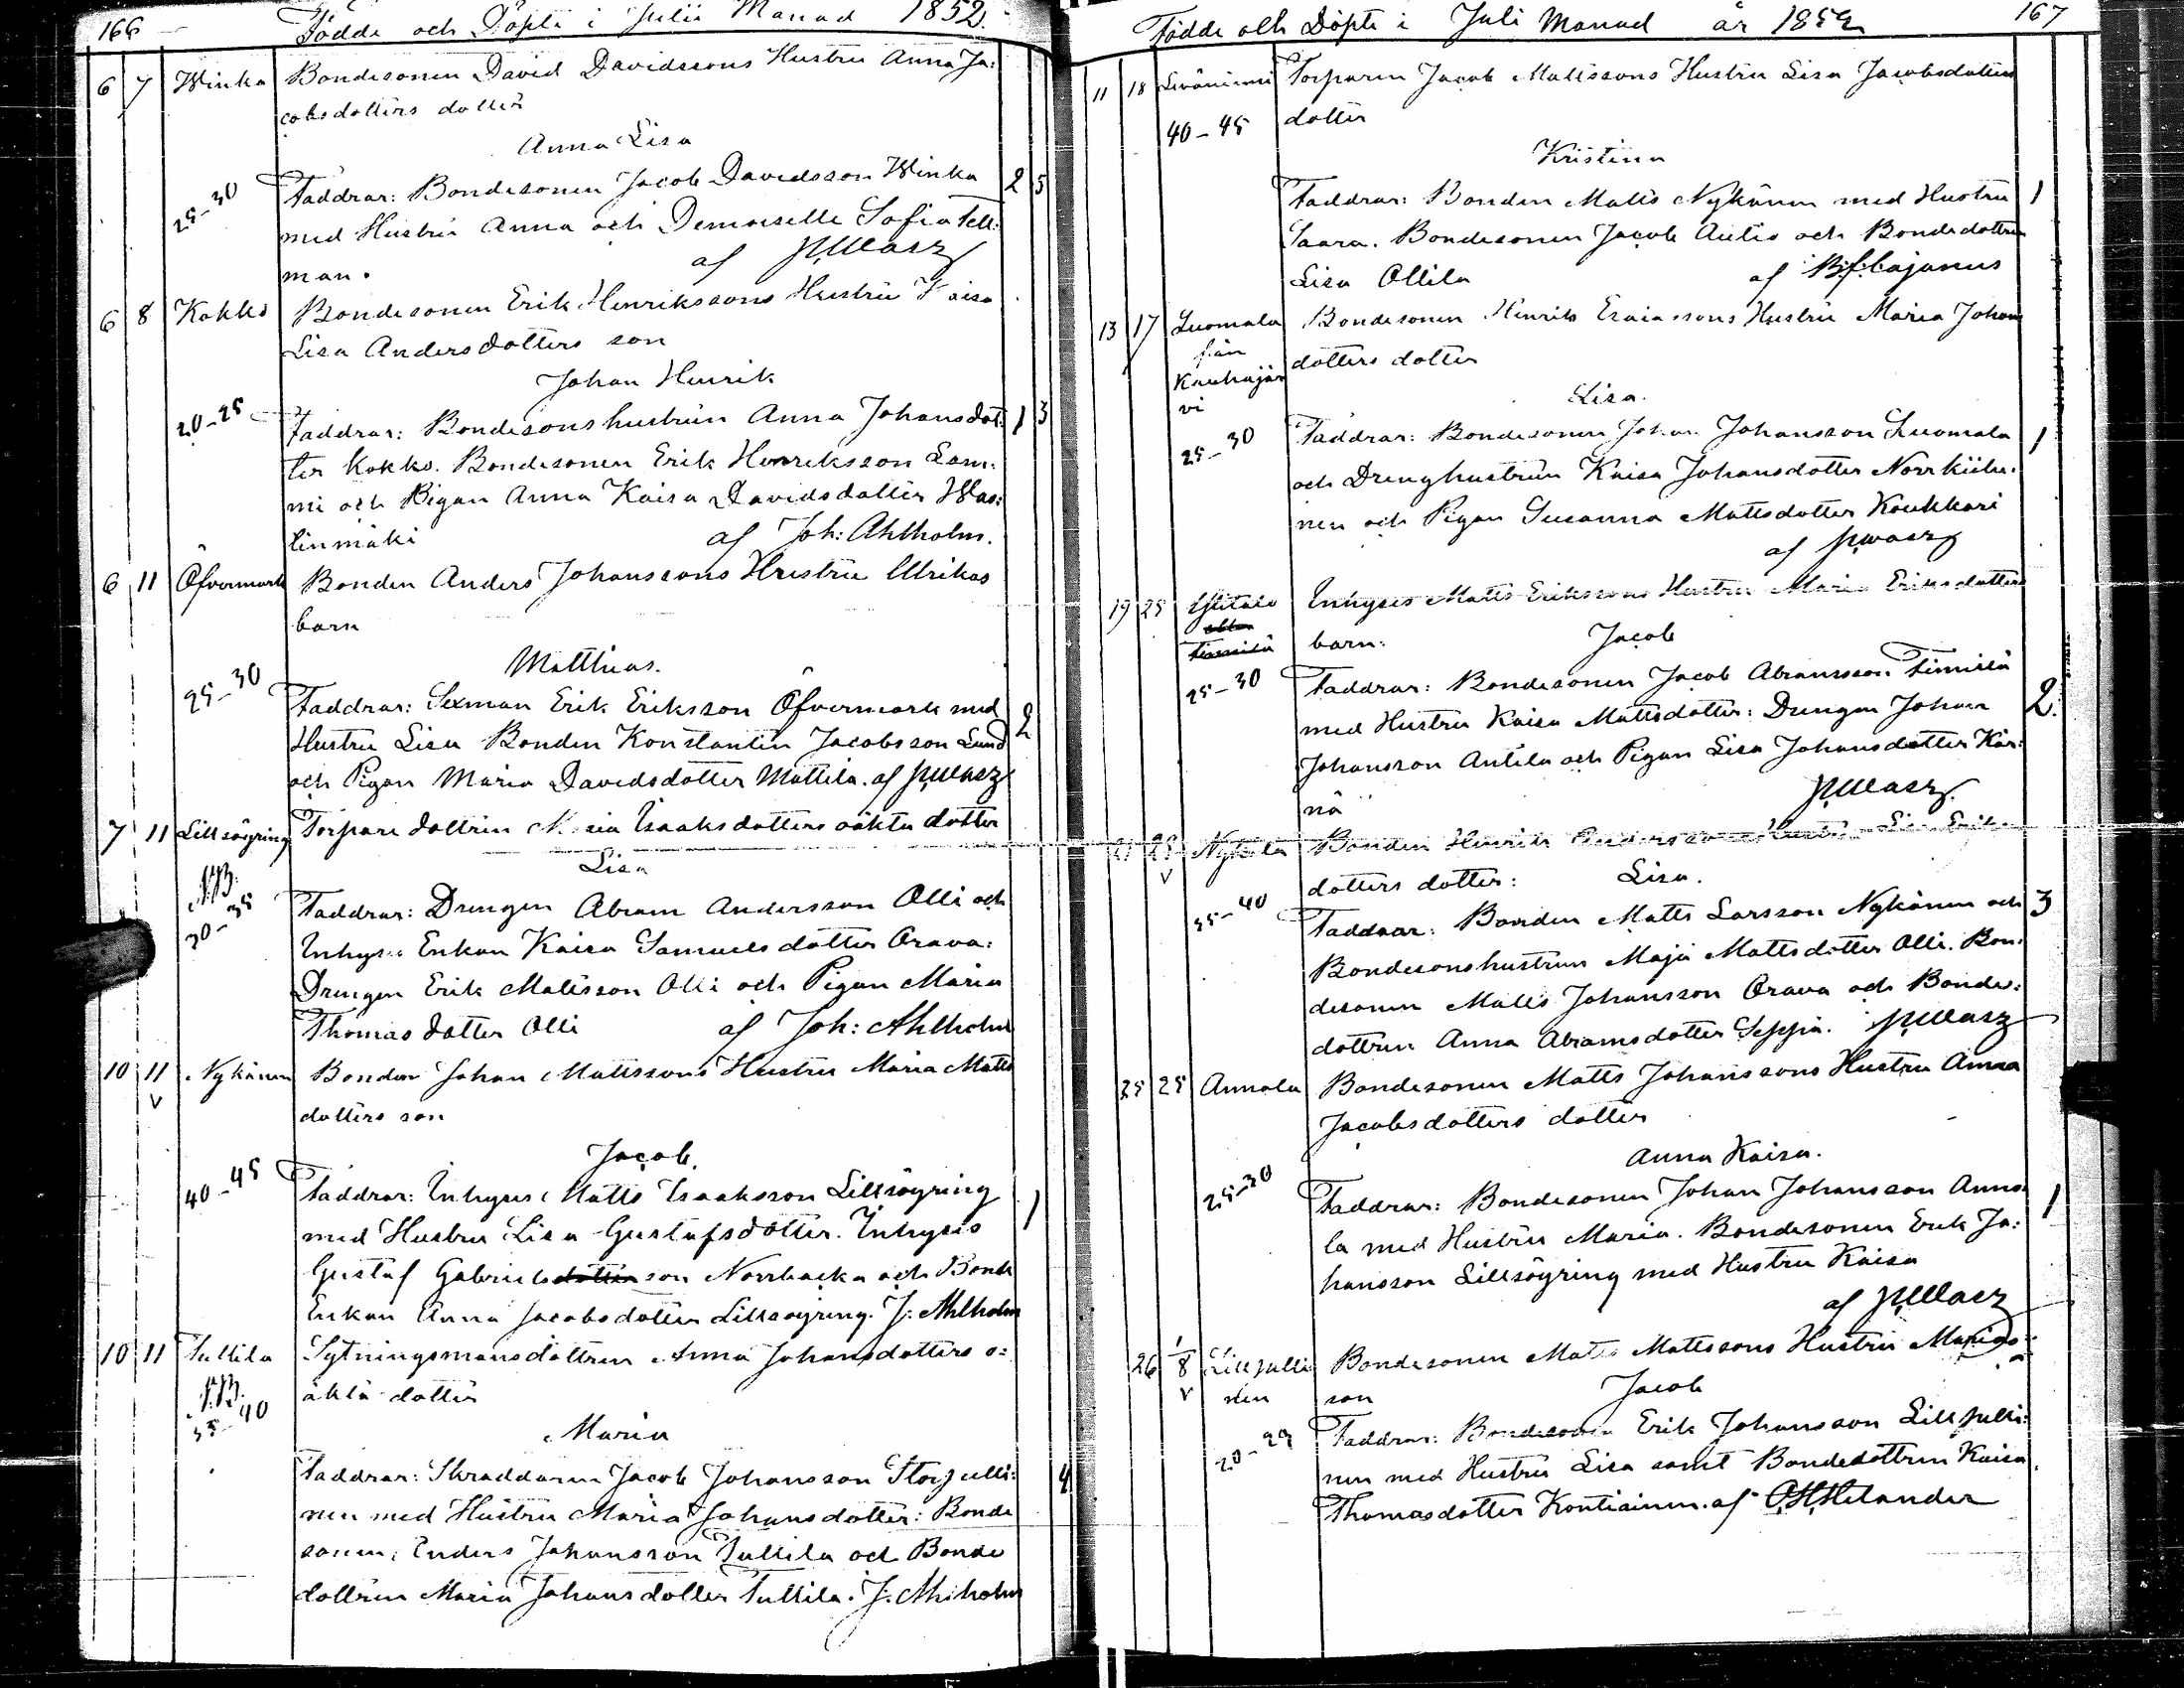 166
Födde och Döpte i Julii Månad 1852.
6 7 Winka Bondesonen David Davidssons Hustru Anna Ja:
cobsdotters dotter
Anna Lisa
25-30 Faddrar: Bondesonen Jacob Davidsson Winka 2 5
med Hustru Anna och Demoiselle Sofia Tell:
man. af
6 8 Kokko Bondesonen Erik Henrikssons Hustru Kaisa
Lisa Andersdotters son
Johan Henrik
20-25 Faddrar: Bondesonshustrun Anna Johansdot: 1 3
ter Kokko. Bondesonen Erik Henriksson Lam:
mi och Pigan Anna Kaisa Davidsdotter Was:
tinmäki af Joh: Ahlholm.
6 11 Öfvermark Bonden Anders Johanssons Hustru Ulrikas
barn
Matthias.
25-30 Faddrar: Sexman Erik Eriksson Öfvermark med
Hustru Lisa Bonden Konstantin Jacobsson Lund 2
och Pigan Maria Davidsdotter Mattila. af
7 11 Lillsöyring Torparedottren Maria Isaaksdotters oäkta dotter
Lisa
N.B.
30-35 Faddrar: Drengen Abram Andersson Olli och
Inhyses Enkan Kaisa Samuelsdotter Orava:
Drengen Erik Mattsson Olli och Pigan Maria
Thomasdotter Olli af Joh: Ahlholm
10 11 Nykänen Bonden Johan Mattssons Hustru Maria Matts
v dotters son
Jacob.
40-45 Faddrar: Inhyses Matts Isaaksson Lillsöyring
med Hustru Lisa Gustafsdotter. Inhyses 1
Gustaf Gabrielsdotter son Norrbacka och Bonde
Enkan Anna Jacobsdotter Lillsöyring. J: Ahlholm
10 11 Tullila Sytningsmansdottren Anna Johansdotters o=
N.B. äkta dotter
35-40
Maria
Faddrar: Skräddaren Jacob Johansson Storjulli: 4
nen med Hustru Maria Johansdotter: Bonde
sonen, Enders Johansson Tullila och Bonde
dottren Maria Johansdotter Tullila. J: Ahlholm
167
Födde och Döpte i Juli Månad år 1852
11 18 Torparen Jacob Matssons Hustru Lisa Jacobsdotters
40-45 dotter
Kristina
Faddrar: Bonden Matts Nykänen med Hustru 1
Saara. Bondesonen Jacob Autio och Bondedottren
Lisa Ollila af Cajanus
13 17 Luomala Bondesonen Henrik Esaiassons Hustru Maria Johans
från dotters dotter
Kauhajär
vi Lisa.
25-30 Faddrar: Bondesonen Johan Johansson Luomala 1
och Drenghustrun Kaisa Johansdotter Norrkiilu:
nen och Pigan Susanna Mattsdotter Koukkari
af
19 25 Ylitalo Inhyses Matts Erikssons Hustru Maria Eriksdotters
barn: Jacob
25-30 Faddrar: Bondesonen Jacob Abramsson Timilä
med Hustru Kaisa Mattsdotter: Drengen Johan 2.
Johansson Antila och Pigan Lisa Johansdotter Kär:
nä
21 25 Nykänen Bonden Henrik Anderssons Hustru Lisa Eriks
v dotters dotter: Lisa.
35-40 Faddrar: Bonden Matts Larsson Nykänen och 3
Bondesonshustrun Maja Mattsdotter Olli. Bon:
desonen Matts Johansson Orava och Bonde:
dottren Anna Abramsdotter Seppä.
25 25 Annala Bondesonen Matts Johanssons Hustru Anna
Jacobsdotters dotter
Anna Kaisa.
25-30 Faddrar: Bondesonen Johan Johansson Anna: 1
la med Hustru Maria. Bondesonen Erik Jo:
hansson Lillsöyring med Hustru Kaisa
af
26 1/8 Lilljulli Bondesonen Matts Mattssons Hustru Marias
v nen son Jacob
Faddrar: Bondesonen Erik Johansson Lilljulli:
nen med Hustru Lisa samt Bondedottren Kaisa
Thomasdotter Kontiainen. af Helander